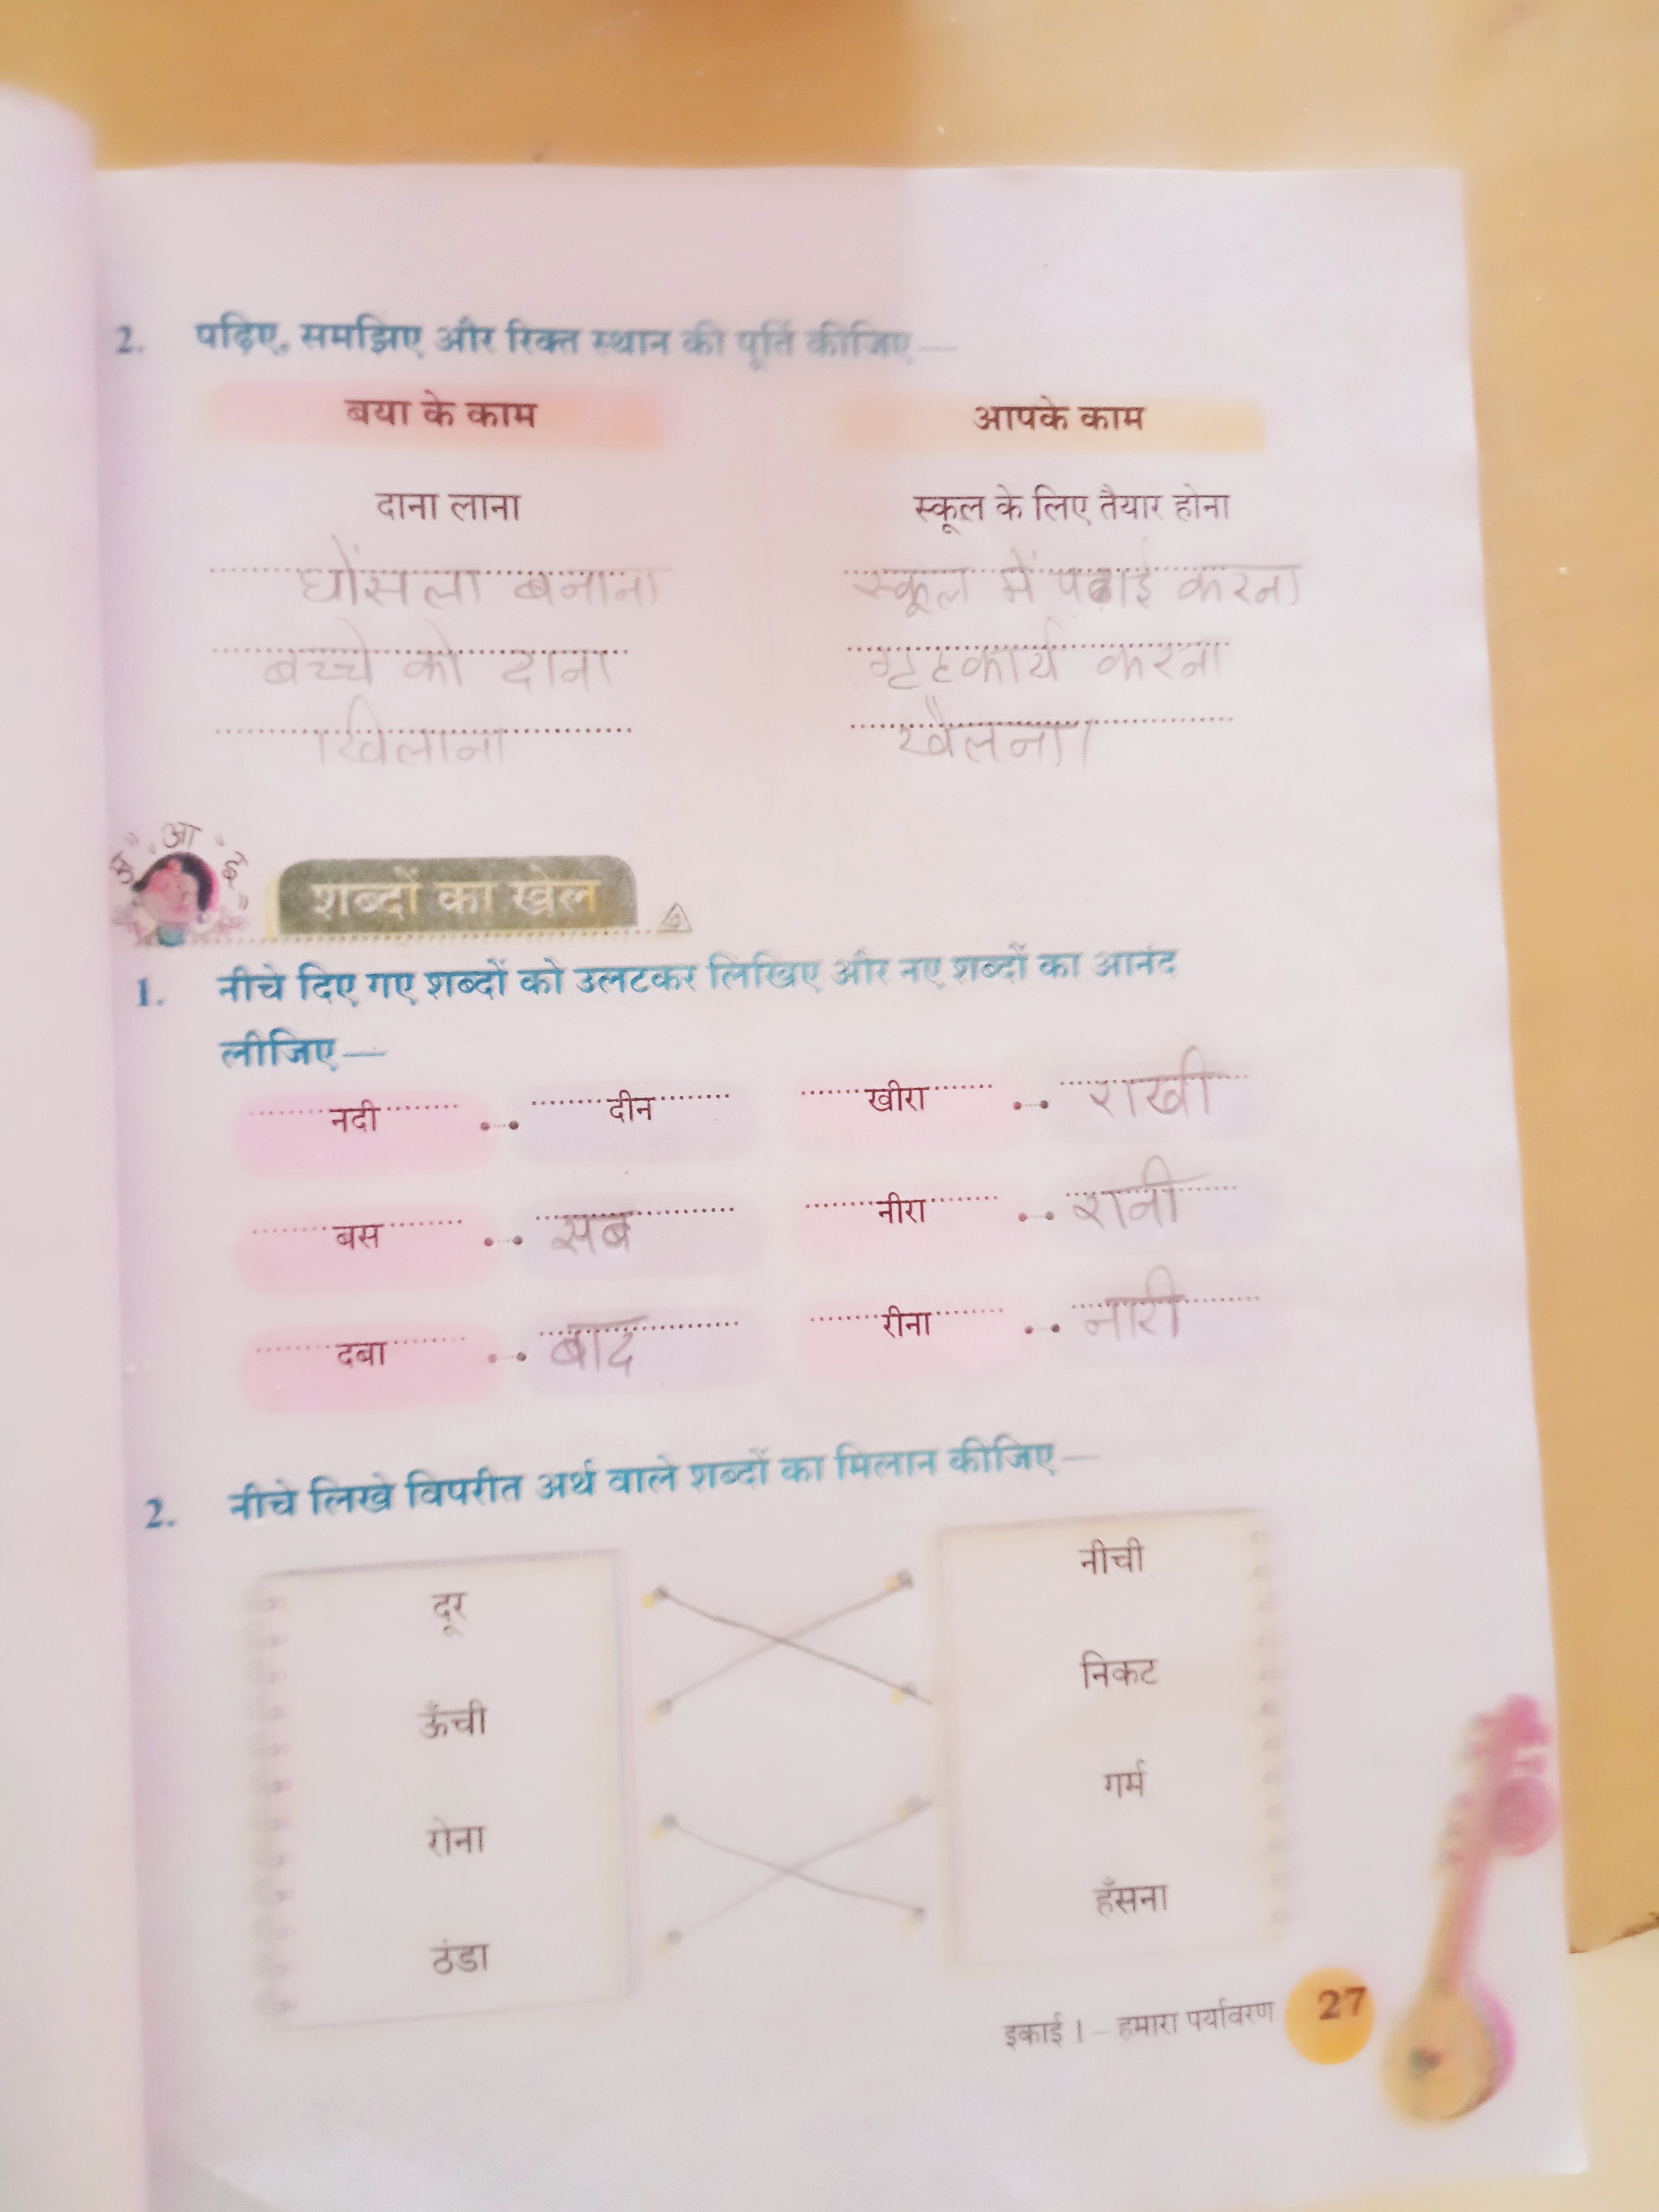 2. पढ़िए, समझिए और रिक्त स्थान की पूर्ति कीजिए—
बया के काम आपके काम
दाना लाना स्कूल के लिए तैयार होना
घोंसला बनाना स्कूल में पढाई करना
बच्चे को दाना गृहकार्य करना
खिलाना खेलना।
आ
शब्दों का खेल
1. नीचे दिए गए शब्दों को उलटकर लिखिए और नए शब्दों का आनंद
लीजिए—
नदी दीन खीरा राखी
बस सब नीरा रानी
दबा बाद रीना नारी
2. नीचे लिखे विपरीत अर्थ वाले शब्दों का मिलान कीजिए—
दूर नीची
ऊँची निकट
रोना गर्म
ठंडा हँसना
इकाई 1 – हमारा पर्यावरण 27